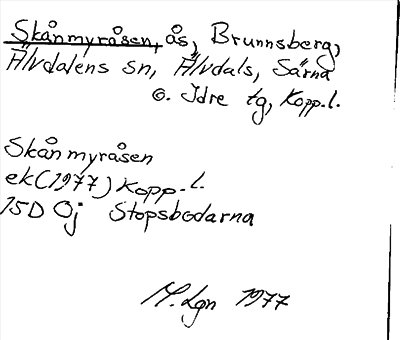 Skånmyråsen, ås, Brunnsberg,
Älvdalens sn, Älvdals, Särna
o. Idre tg, Kopp.l.
Skånmyråsen
ek (1977) Kopp.l.
15D 0j Stopsbodarna
M. Lgn 1977